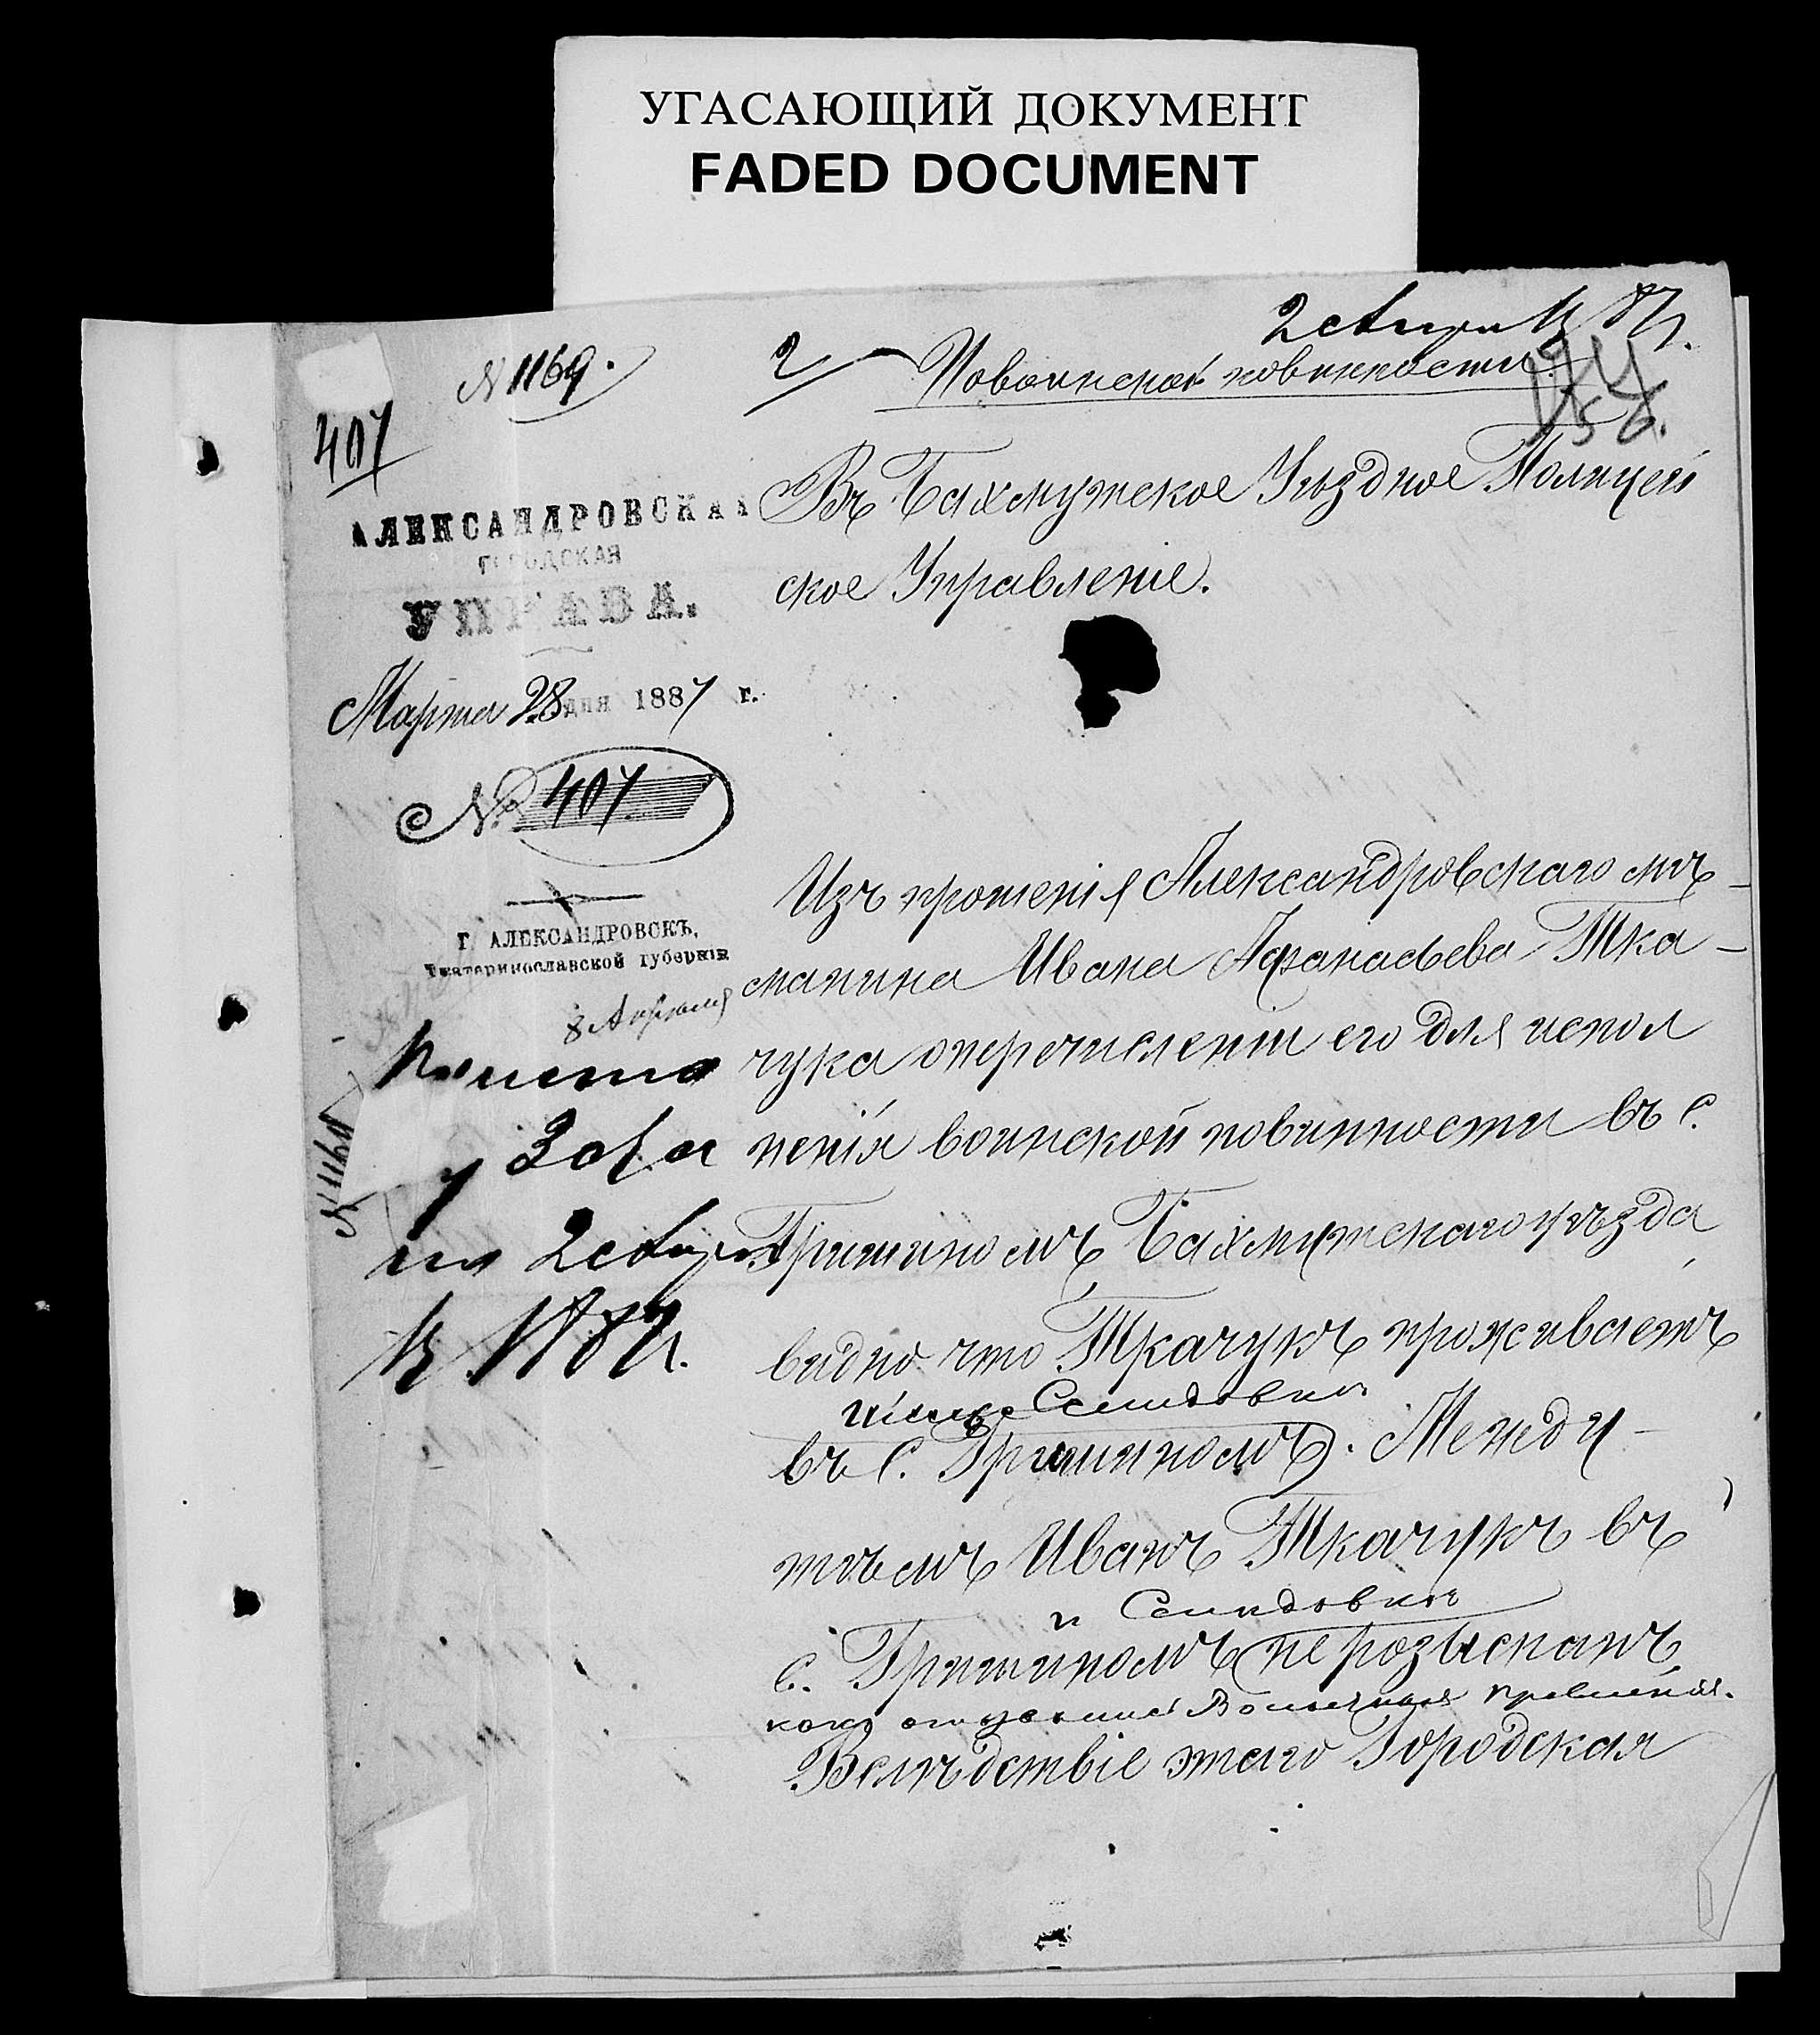 УГАСАЮЩИЙ ДОКУМЕНТ
FADED DOCUMENT
87г.
№ 1169.
2
По воинской повинности
156.
407
АЛЕКСАНДРОВСКАЯ
ГОРОДСКАЯ
УПРАВА.
Марта 28 дня 1887 г.
№ 407
Г. АЛЕКСАНДРОВСКЪ,
Екатеринославской губерніи
8 Апреля
№ 1169
1887г.
Въ Бахмутское Уѣздное Полицей
ское Управленіе.
Изъ прошенія Александровскаго мѣ-
щанина Ивана Афанасьева Тка-
чука о перечисленіи его для испол
ненія воинской повинности въ с.
Гришиномъ Бахмутскаго уѣзда
видно что Ткачукъ проживаетъ
въ с. Гришиномъ. Между
тѣмъ Иванъ Ткачукъ въ
с. Гришиномъ не розысканъ
Вслѣдствіе этаго Городская